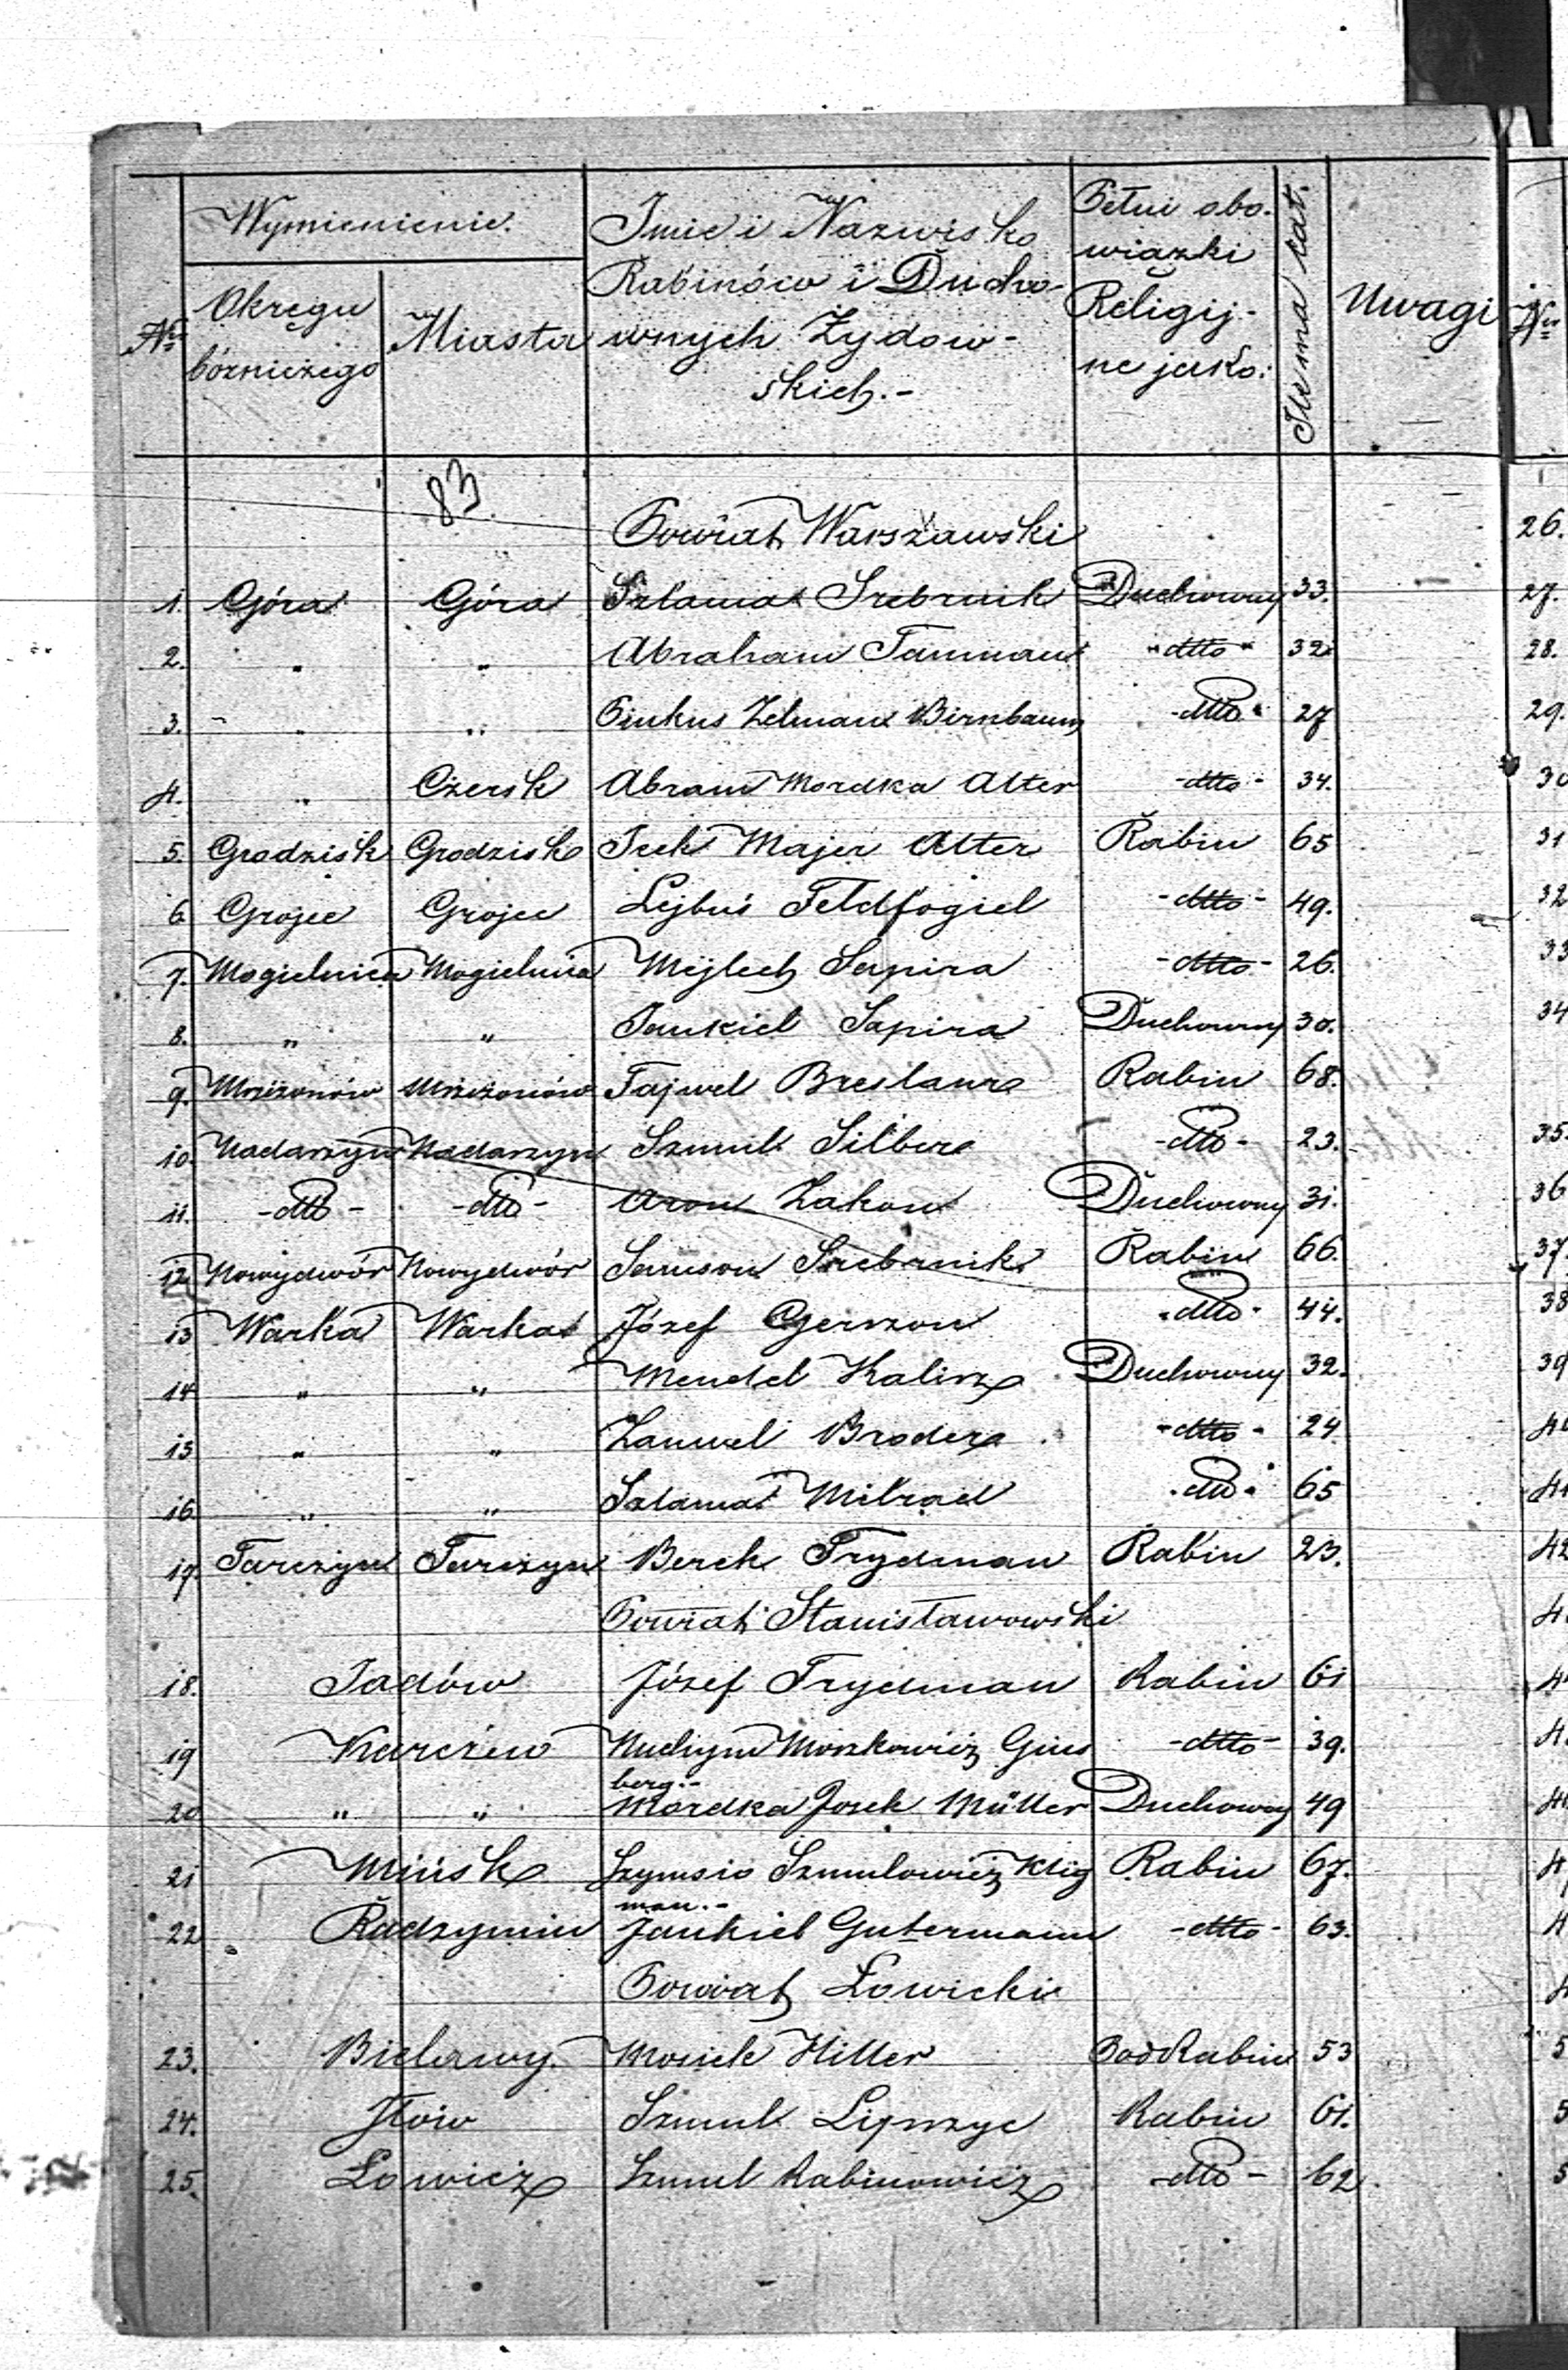 Wymienienie.
Imie i Nazwisko
Rabinów i Ducho-
wnych Żydow-
skich.-
Pełni obo-
wiązki
Religij-
ne jako:
Ile ma lat.
Uwagi
№
Okręgu
bóżniczego
Miasta
№
83
Powiat Warszawski
26.
1. Góra Góra Szlama Srebrnik Duchowny 33.
27.
2. " " Abraham Tanman " dtto " 32
28.
3. " " Pinkus Zelman Birnbaum - dtto - 27
29.
4. " Czersk Abram Mordka Alter - dtto - 34.
30
5. Grodzisk Grodzisk Icek Majer Alter Rabin 65
31
6 Grojec Grojec Lejbuś Feldfogiel - dtto - 49.
32
7. Mogielnica Mogielnica Mejlech Sapira - dtto - 26.
33
8. " " Jankiel Sapira Duchowny 30.
34
9. Mszczonów Mszczonów Fajwel Breslauer Rabin 68.
10. Nadarzyn Nadarzyn Szmul Silber - dtto - 23.
35.
11. - dtto - - dtto - Aron Zakon Duchowny 31.
36
12 Nowydwór Nowydwór Samson Srebrnik Rabin 66.
37.
13 Warka Warka Józef Gerszon - dtto - 44.
38
14 " " Mendel Kalisz Duchowny 32.
39
15 " " Zanwel Broder - dtto - 24
16 " " Szlama Milrad - dtto - 65
17. Tarczyn Tarczyn Berek Frydman Rabin 23.
42
Powiat Stanisławowski
18. Jadów Józef Frydman Rabin 61
19 Karczew Nuchym Moszkowicz Gins
berg.- - dtto - 39.
20 " " Mordka Josek Müller Duchowny 49
21 Mińsk Szymsio Szmulowicz Klig
man.- Rabin 67.
22 Radzymin Jankiel Gutermann - dtto - 63.
Powiat Łowicki
23. Bielawy. Mosiek Hiller PodRabin 53
24. Iłów Szmul Lipszyc Rabin 61.
25. Łowicz Szmul Rabinowicz - dtto - 62